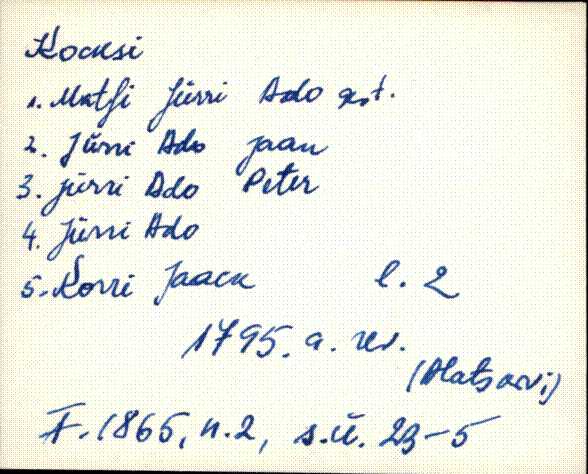 Kocksi
1. Matsi Jürri Ado gest.
2. Jürri Ado Jaan
3. Jürri Ado Peter
4. Jürri Ado
5. Korri Jaack l. 2
1795. a. rev.
(Alatsarvi)
F. 1865, n. 2, s.ü. 23-5